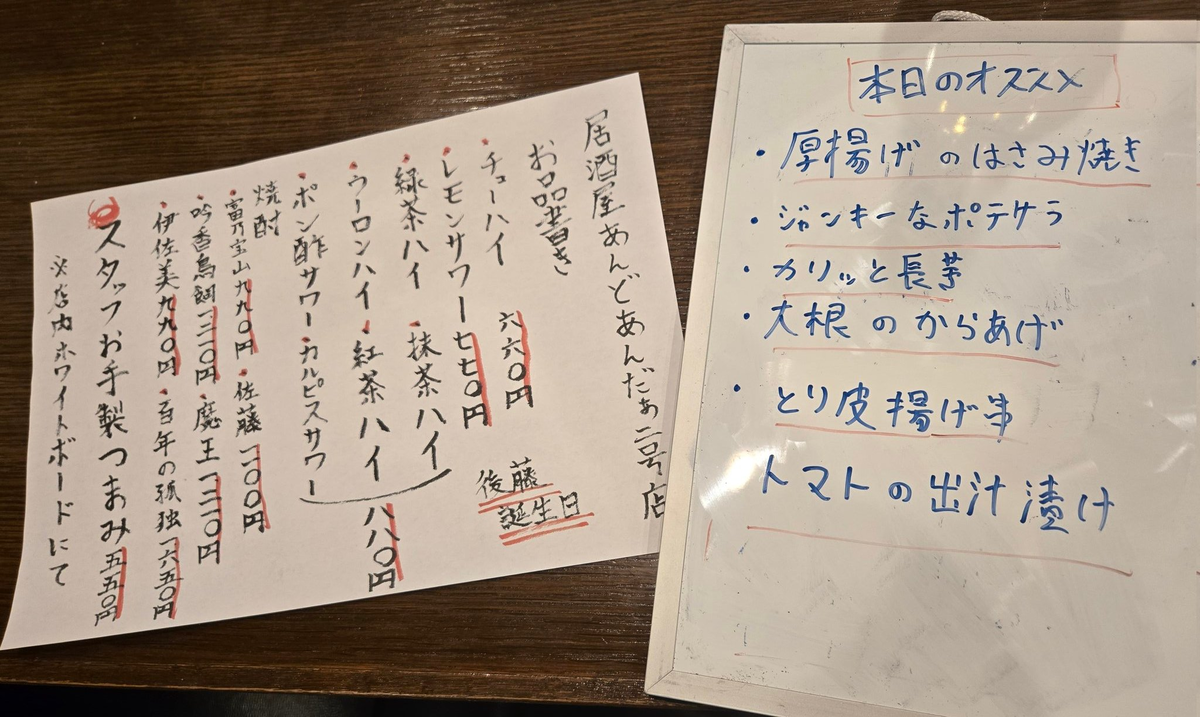 居酒屋あんどあんだぁ二号店
お品書き
後藤
誕生日
・チューハイ 六六〇円
・レモンサワー七七〇円
・緑茶ハイ ・抹茶ハイ
・ウーロンハイ ・紅茶ハイ
・ポン酢サワー ・カルピスサワー
八八〇円
焼酎
・富乃宝山九九〇円 ・佐藤一一〇〇円
・吟香鳥飼一二一〇円 ・魔王一二一〇円
・伊佐美九九〇円 ・百年の孤独一六五〇円
スタッフお手製つまみ五五〇円
※店内ホワイトボードにて
本日のオススメ
・厚揚げのはさみ焼き
・ジャンキーなポテサラ
・カリッと長芋
・大根のからあげ
・とり皮揚げ串
トマトの出汁漬け